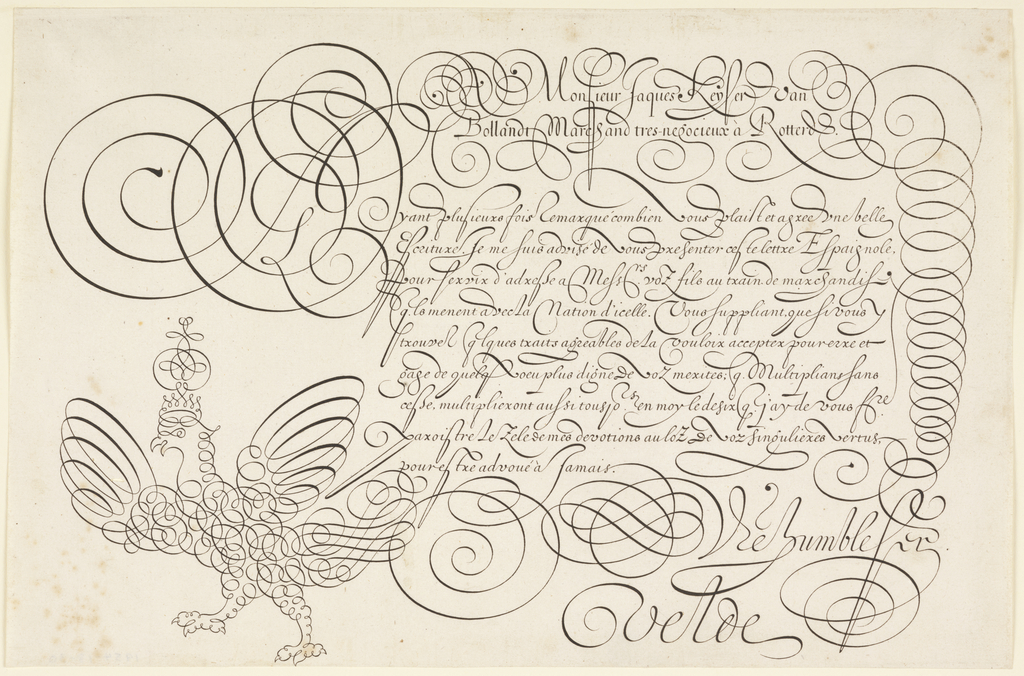 A Monsieur Jaques Keyser Van
Bollandt Marchand tres-negocieux à Rotterd.
Ayant plusieurs fois Remarqué combien vous plaist et agree vne belle
Escriture. Je me suis advisé de vous presenter ceste lettre Espaignole.
pour servir d'adresse a Mess.rs voz fils au train de marchandise
q'ls menent avec la Nation d'icelle. Vous suppliant, que si vous y
trouvez q'lques traits agreables de la vouloir accepter pour erre et
gage de quelq. voeu plus digne de voz merites; q. Multiplians sans
cesse, multiplieront aussi tousjo.rs en moy le desir q. j'ay de vous f.re
Paroistre le Zele de mes devotions au loz de voz singulieres vertus,
pour estre advoué à Jamais.
Vre humble Ser
Velde